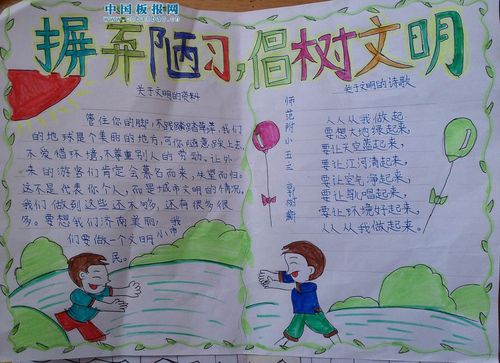 中国板报网
摒弃陋习,倡树文明
关于文明的资料
管住你的脚,不践踏草坪,我们
的地球是个美丽的地方,可你随意踩上去,
不爱惜环境,不尊重别人的劳动,让外
来的游客们肯定会慕名而来,失望而归。
这不是代表你个人,而是城市文明的情况。
我们做到这些还不够,还有很多很
多。要想我们济南美丽,我
们要做一个文明小市
民。
关于文明的诗歌
师范附小五三
人人从我做起
要想大地绿起来,
要让天空蓝起来,
要让江河清起来,
要让空气净起来,
要让歌儿唱起来,
要让环境好起来,
人人从我做起。